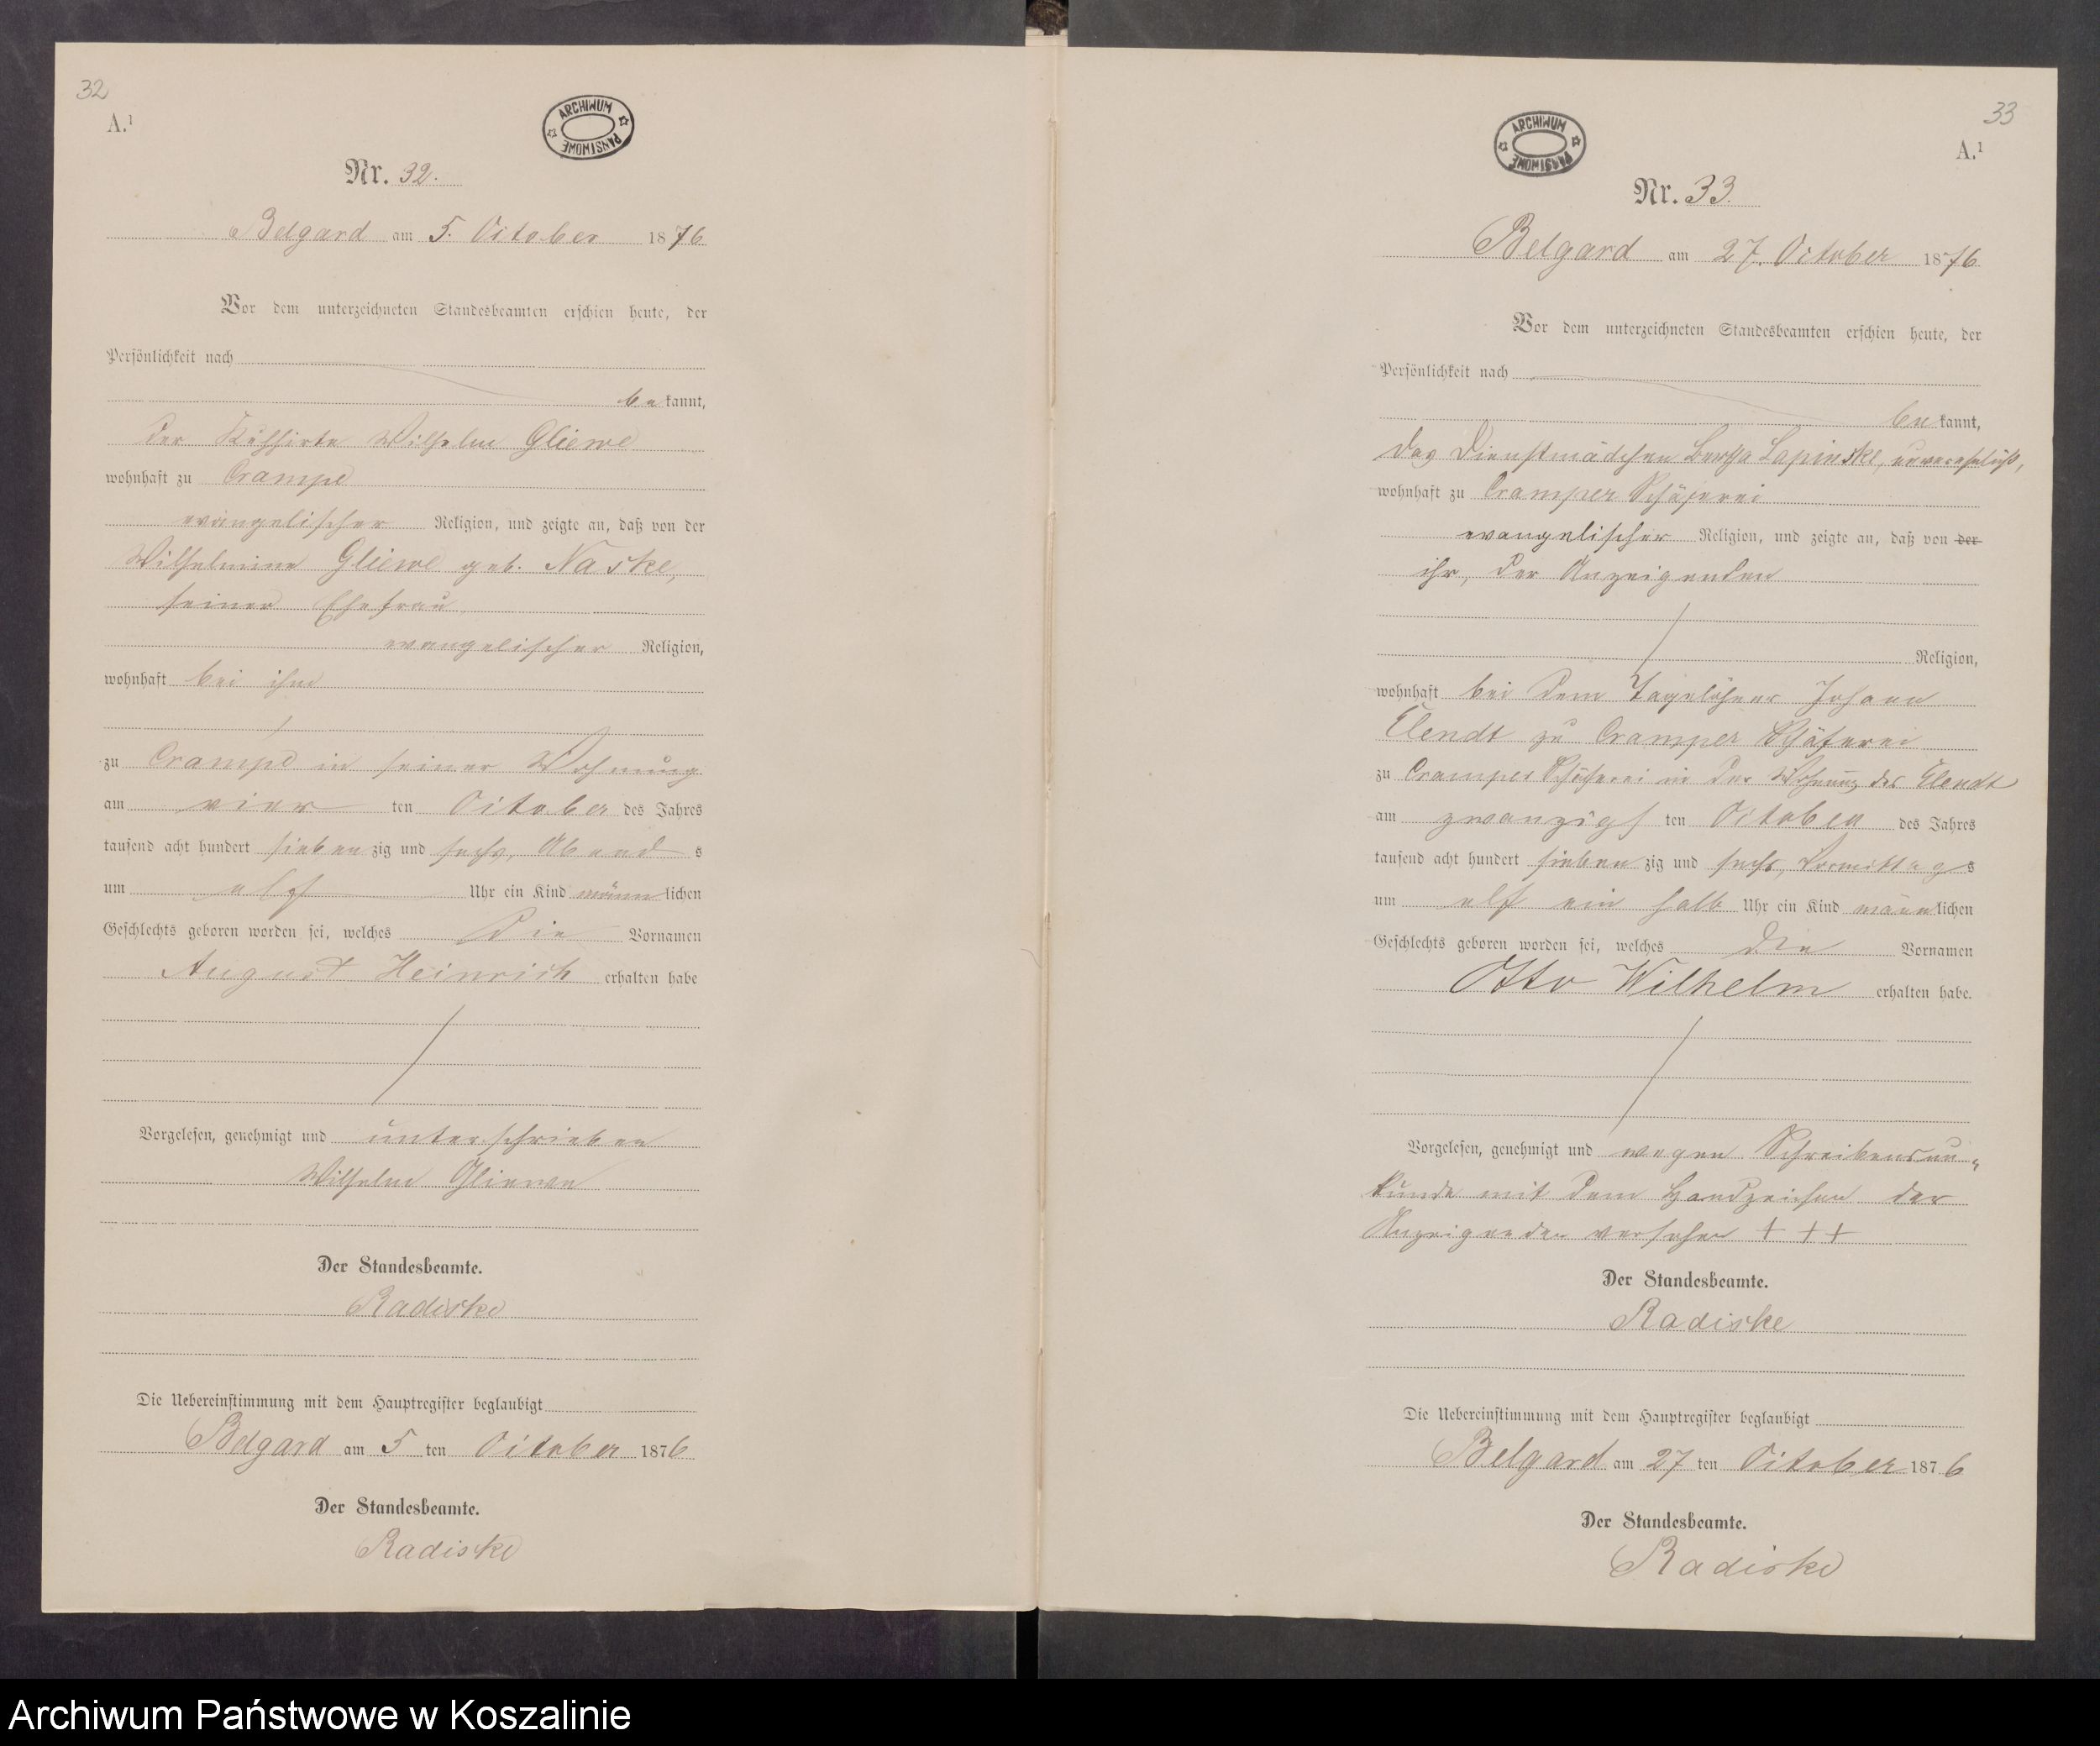 32
A.¹
ARCHIWUM PAŃSTWOWE
Nr. 32.
Belgard am 5. October 1876
Vor dem unterzeichneten Standesbeamten erschien heute, der
Persönlichkeit nach
be kannt,
der Kuhhirte Wilhelm Gliewe
wohnhaft zu Crampe
evangelischer Religion, und zeigte an, daß von der
Wilhelmine Gliewe geb. Naske,
seiner Ehefrau
evangelischer Religion,
wohnhaft bei ihm
zu Crampe in seiner Wohnung
am vier ten October des Jahres
tausend acht hundert sieben zig und sechs, Abend s
um elf Uhr ein Kind männ lichen
Geschlechts geboren worden sei, welches die Vornamen
August Heinrich erhalten habe
Vorgelesen, genehmigt und unterschrieben
Wilhelm Gliewe
Der Standesbeamte.
Radiske
Die Uebereinstimmung mit dem Hauptregister beglaubigt
Belgard am 5 ten October 1876
Der Standesbeamte.
Radiske
33
A.¹
ARCHIWUM PAŃSTWOWE
Nr. 33.
Belgard am 27. October 1876
Vor dem unterzeichneten Standesbeamten erschien heute, der
Persönlichkeit nach
be kannt,
das Dienstmädchen Bertha Lapinske, unverehelicht,
wohnhaft zu Cramper Schäferei
evangelischer Religion, und zeigte an, daß von der
ihr, der Anzeigenden
Religion,
wohnhaft bei dem Tagelöhner Johann
Elendt zu Cramper Schäferei
zu Cramper Schäferei in der Wohnung des Elendt
am zwanzigs ten October des Jahres
tausend acht hundert sieben zig und sechs, Vormittag s
um elf ein halb Uhr ein Kind männ lichen
Geschlechts geboren worden sei, welches die Vornamen
Otto Wilhelm erhalten habe.
Vorgelesen, genehmigt und wegen Schreibensun-
kunde mit dem Handzeichen der
Anzeigenden versehen + + +
Der Standesbeamte.
Radiske
Die Uebereinstimmung mit dem Hauptregister beglaubigt
Belgard am 27 ten October 1876
Der Standesbeamte.
Radiske
Archiwum Państwowe w Koszalinie